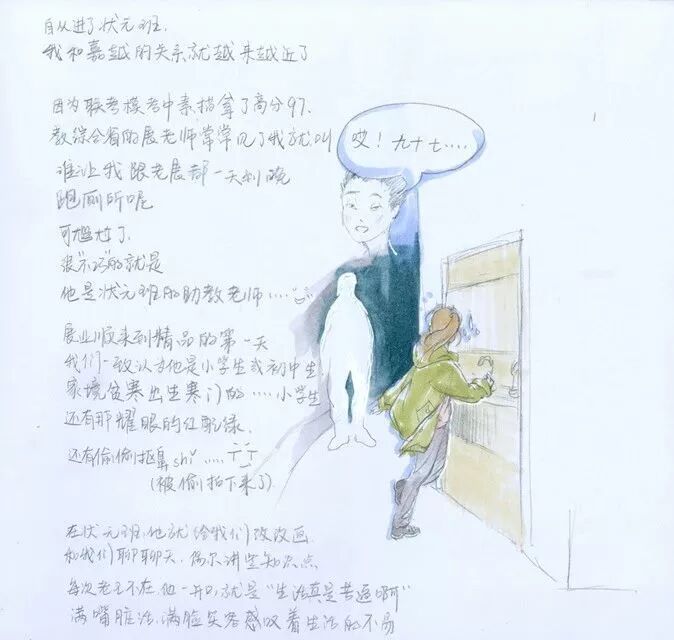 自从进了状元班.
我和嘉越的关系就越来越近了
因为联考模考中素描拿了高分97.
教综合省的展老师常常见了我就叫
哎！九十七....
谁让我跟老展都一天到晚
跑厕所呢
可尴尬了.
很"不巧"的就是
他是状元班的助教老师....
展业顺来到精品的第一天
我们一致认为他是小学生或初中生.
家境贫寒出生寒门的....小学生
还有那耀眼的红配绿.
还有偷偷抠鼻shi....
(被偷拍下来了)
在状元班他就给我们改改画.
和我们聊聊天.偶尔讲些知识点
每次老王不在他一开口就是"生活真是苦逼啊"
满嘴脏话.满脸笑容感叹着生活的不易